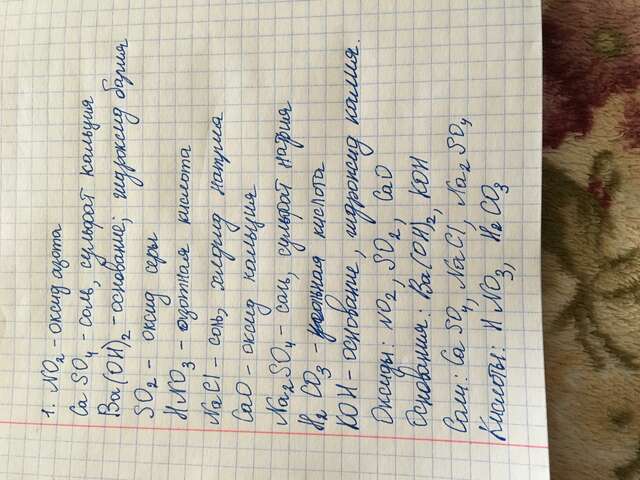 1. NO2 - оксид азота
CaSO4 - соль, сульфат кальция
Ba(OH)2 - основание; гидроксид бария
SO2 - оксид серы
HNO3 - азотная кислота
NaCl - соль, хлорид натрия
CaO - оксид кальция
Na2SO4 - соль, сульфат натрия
H2CO3 - угольная кислота
KOH - основание, гидроксид калия.
Оксиды: NO2, SO2, CaO
Основания: Ba(OH)2, KOH
Соли: CaSO4, NaCl, Na2SO4
Кислоты: HNO3, H2CO3